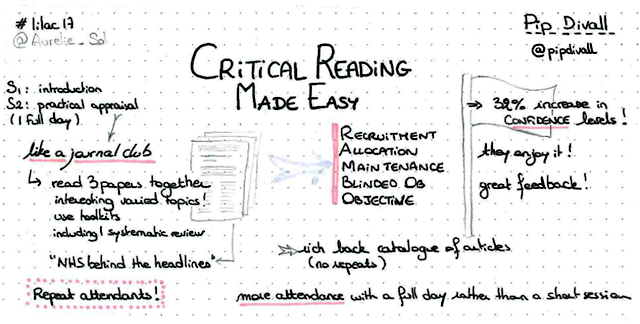 #lilac17
@Aurelie_Sol
Pip Divall
@pipdivall
CRITICAL READING
MADE EASY
S1: introduction
S2: practical appraisal
(1 full day)
like a journal club
↳ read 3 papers together
interesting varied topics!
use toolkits
including 1 systematic review
"NHS behind the headlines"
Repeat attendants!
RECRUITMENT
ALLOCATION
MAINTENANCE
BLINDED OB
OBJECTIVE
rich back catalogue of articles
(no repeats)
⇒ 32% increase in
CONFIDENCE levels!
they enjoy it!
great feedback!
more attendance with a full day rather than a short session